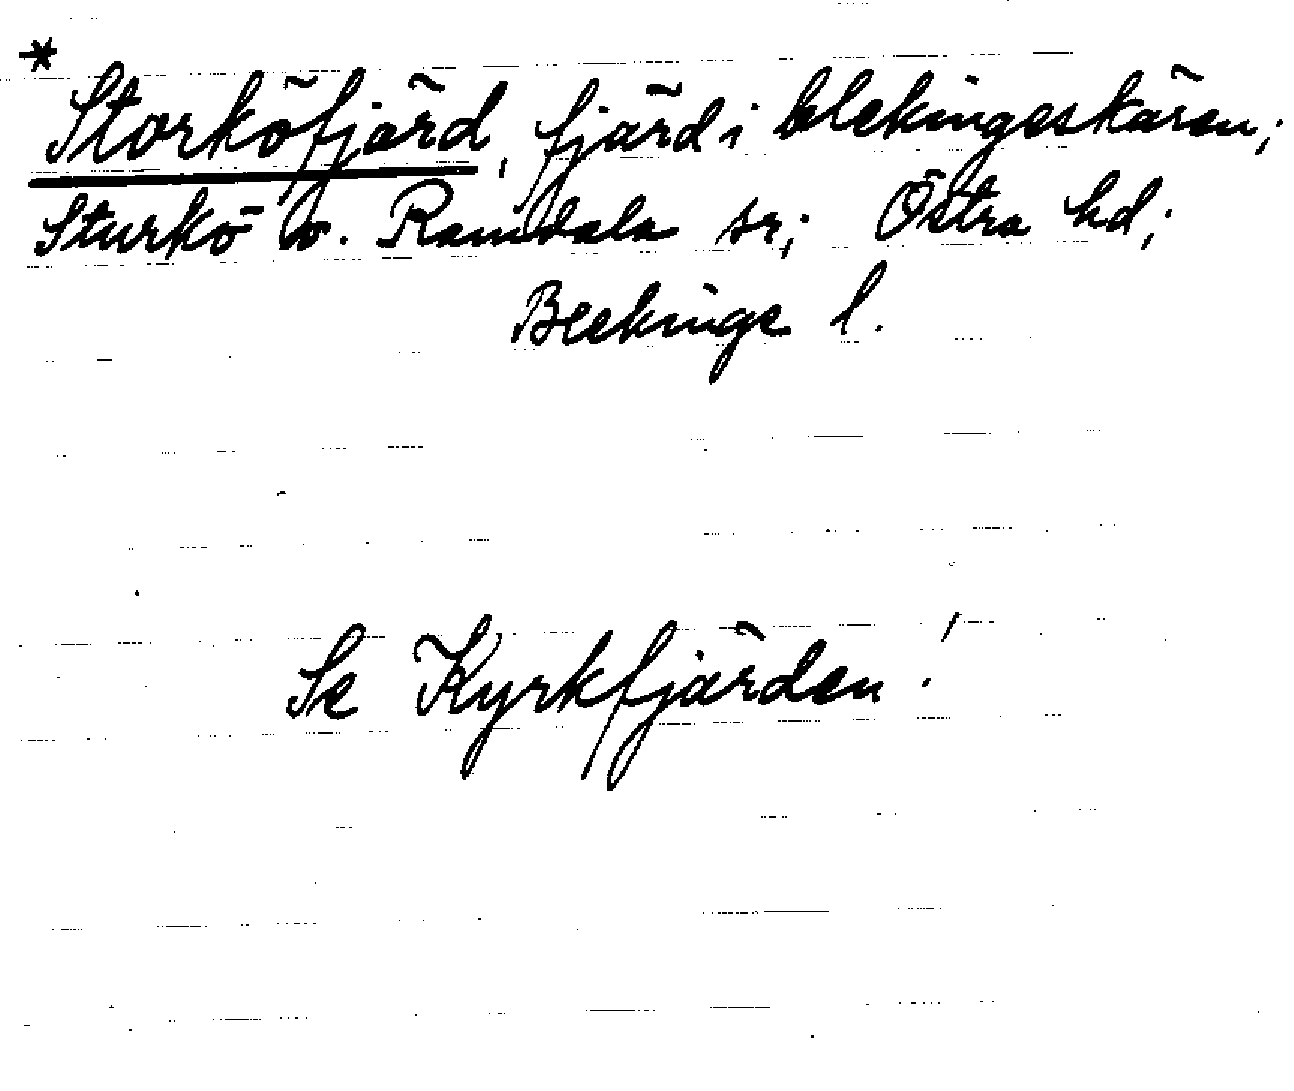 *
Storköfjärd, fjärd i blekingeskären;
Sturkö o. Ramdala sr; Östra hd;
Blekinge l.
Se Kyrkfjärden!